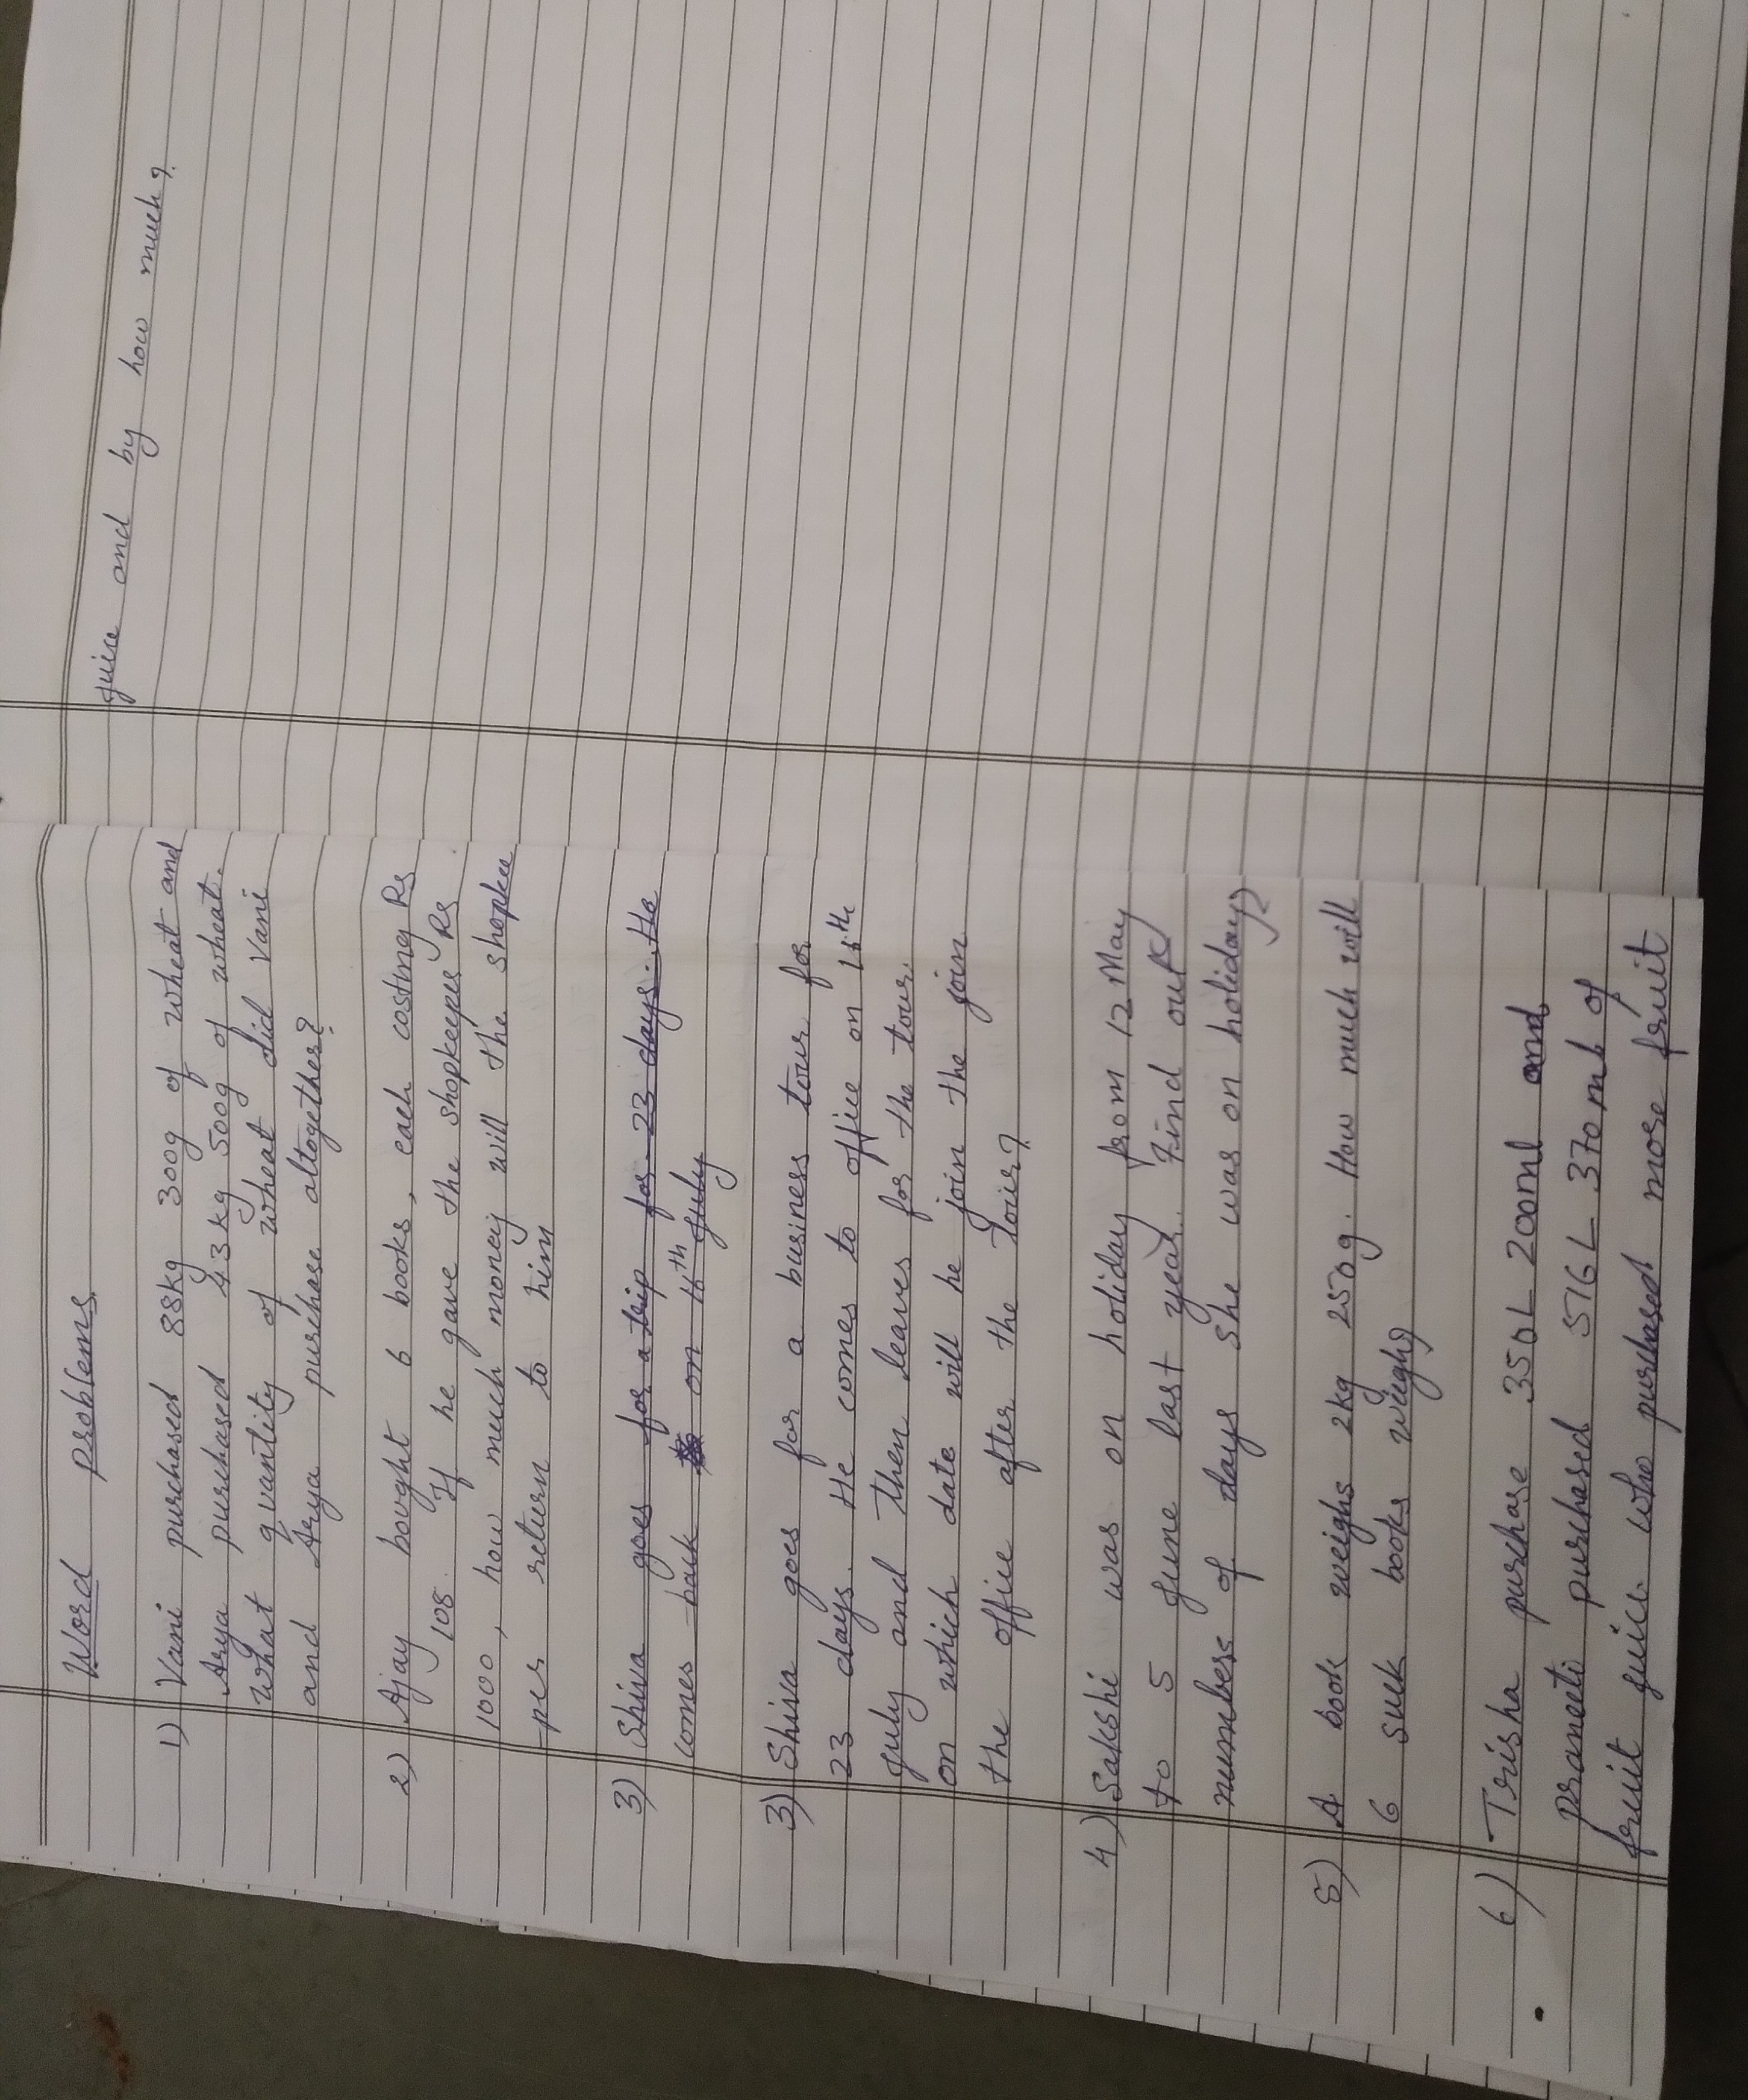 Word problems
1) Vani purchased 88kg 300g of wheat and
Arya purchased 43kg 500g of wheat.
What quantity of wheat did Vani
and Arya purchase altogether?
2) Ajay bought 6 books, each costing Rs
108. If he gave the shopkeeper Rs
1000, how much money will the shopkee
per return to him
3) Shiva goes for a trip for 23 days. He
comes back on 16th july
3) Shiva goes for a business tour for
23 days. He comes to office on 16th
july and then leaves for the tour.
on which date will he join the join
the office after the tour?
4) Sakshi was on holiday from 12 May
to 5 june last year. Find out
numbers of days She was on holiday?
5) A book weighs 2kg 250g. How much will
6 such books weigh?
6) Trisha purchase 350L 200ml and
praneeti purchased 516L 370ml of
fruit juice. who purchased more fruit
juice and by how much?